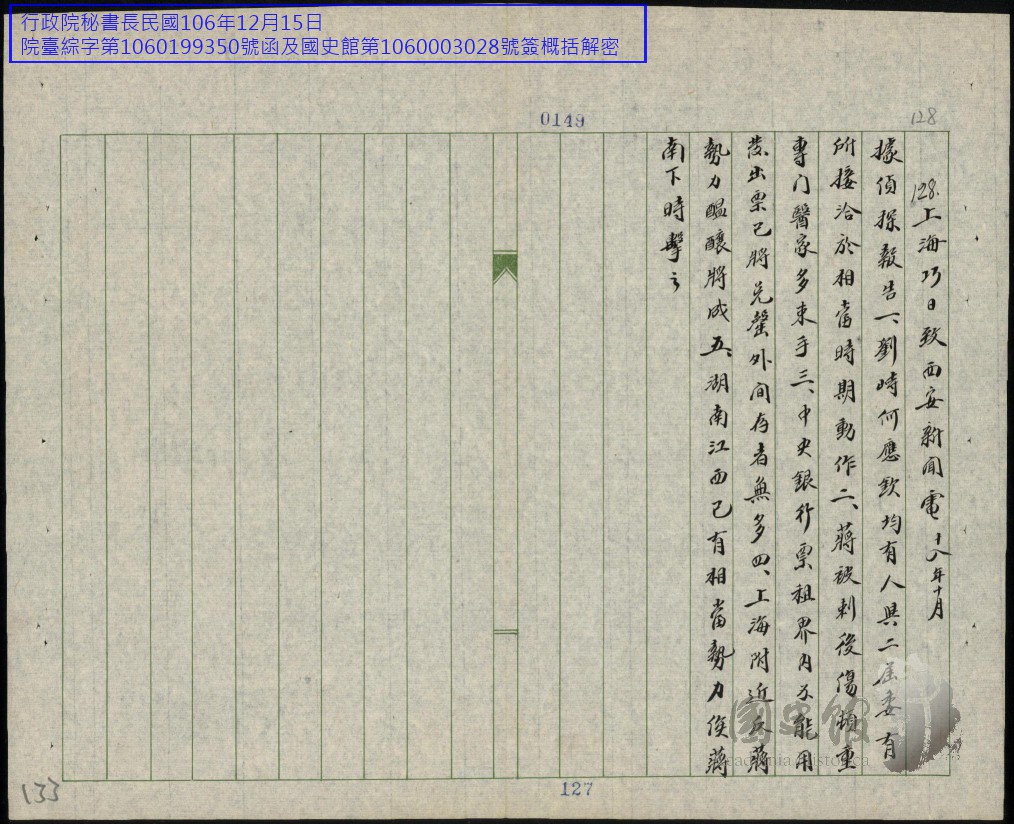 行政院秘書長民國106年12月15日
院臺綜字第1060199350號函及國史館第1060003028號簽概括解密
0149
128
128.上海巧日致西安新聞電 十八年十月
據偵探報告一、劉峙何應欽均有人與二屆委有
所接洽於相當時期動作二、蔣被刺後傷頗重
專门醫家多束手三、中央銀行票租界內不能用
發出票已將兌罄外间存者無多四、上海附近反蔣
勢力醞釀將成五、湖南江西已有相當勢力俟蔣
南下時擊之
國史館
Academia Historica
127
133